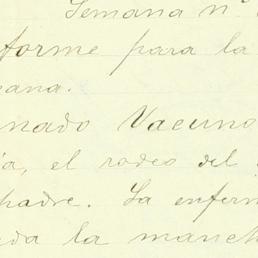 Semana nº
forme para la
ana.
nado Vacuno
ia, el rodeo del
padre. La enferm
da la manch